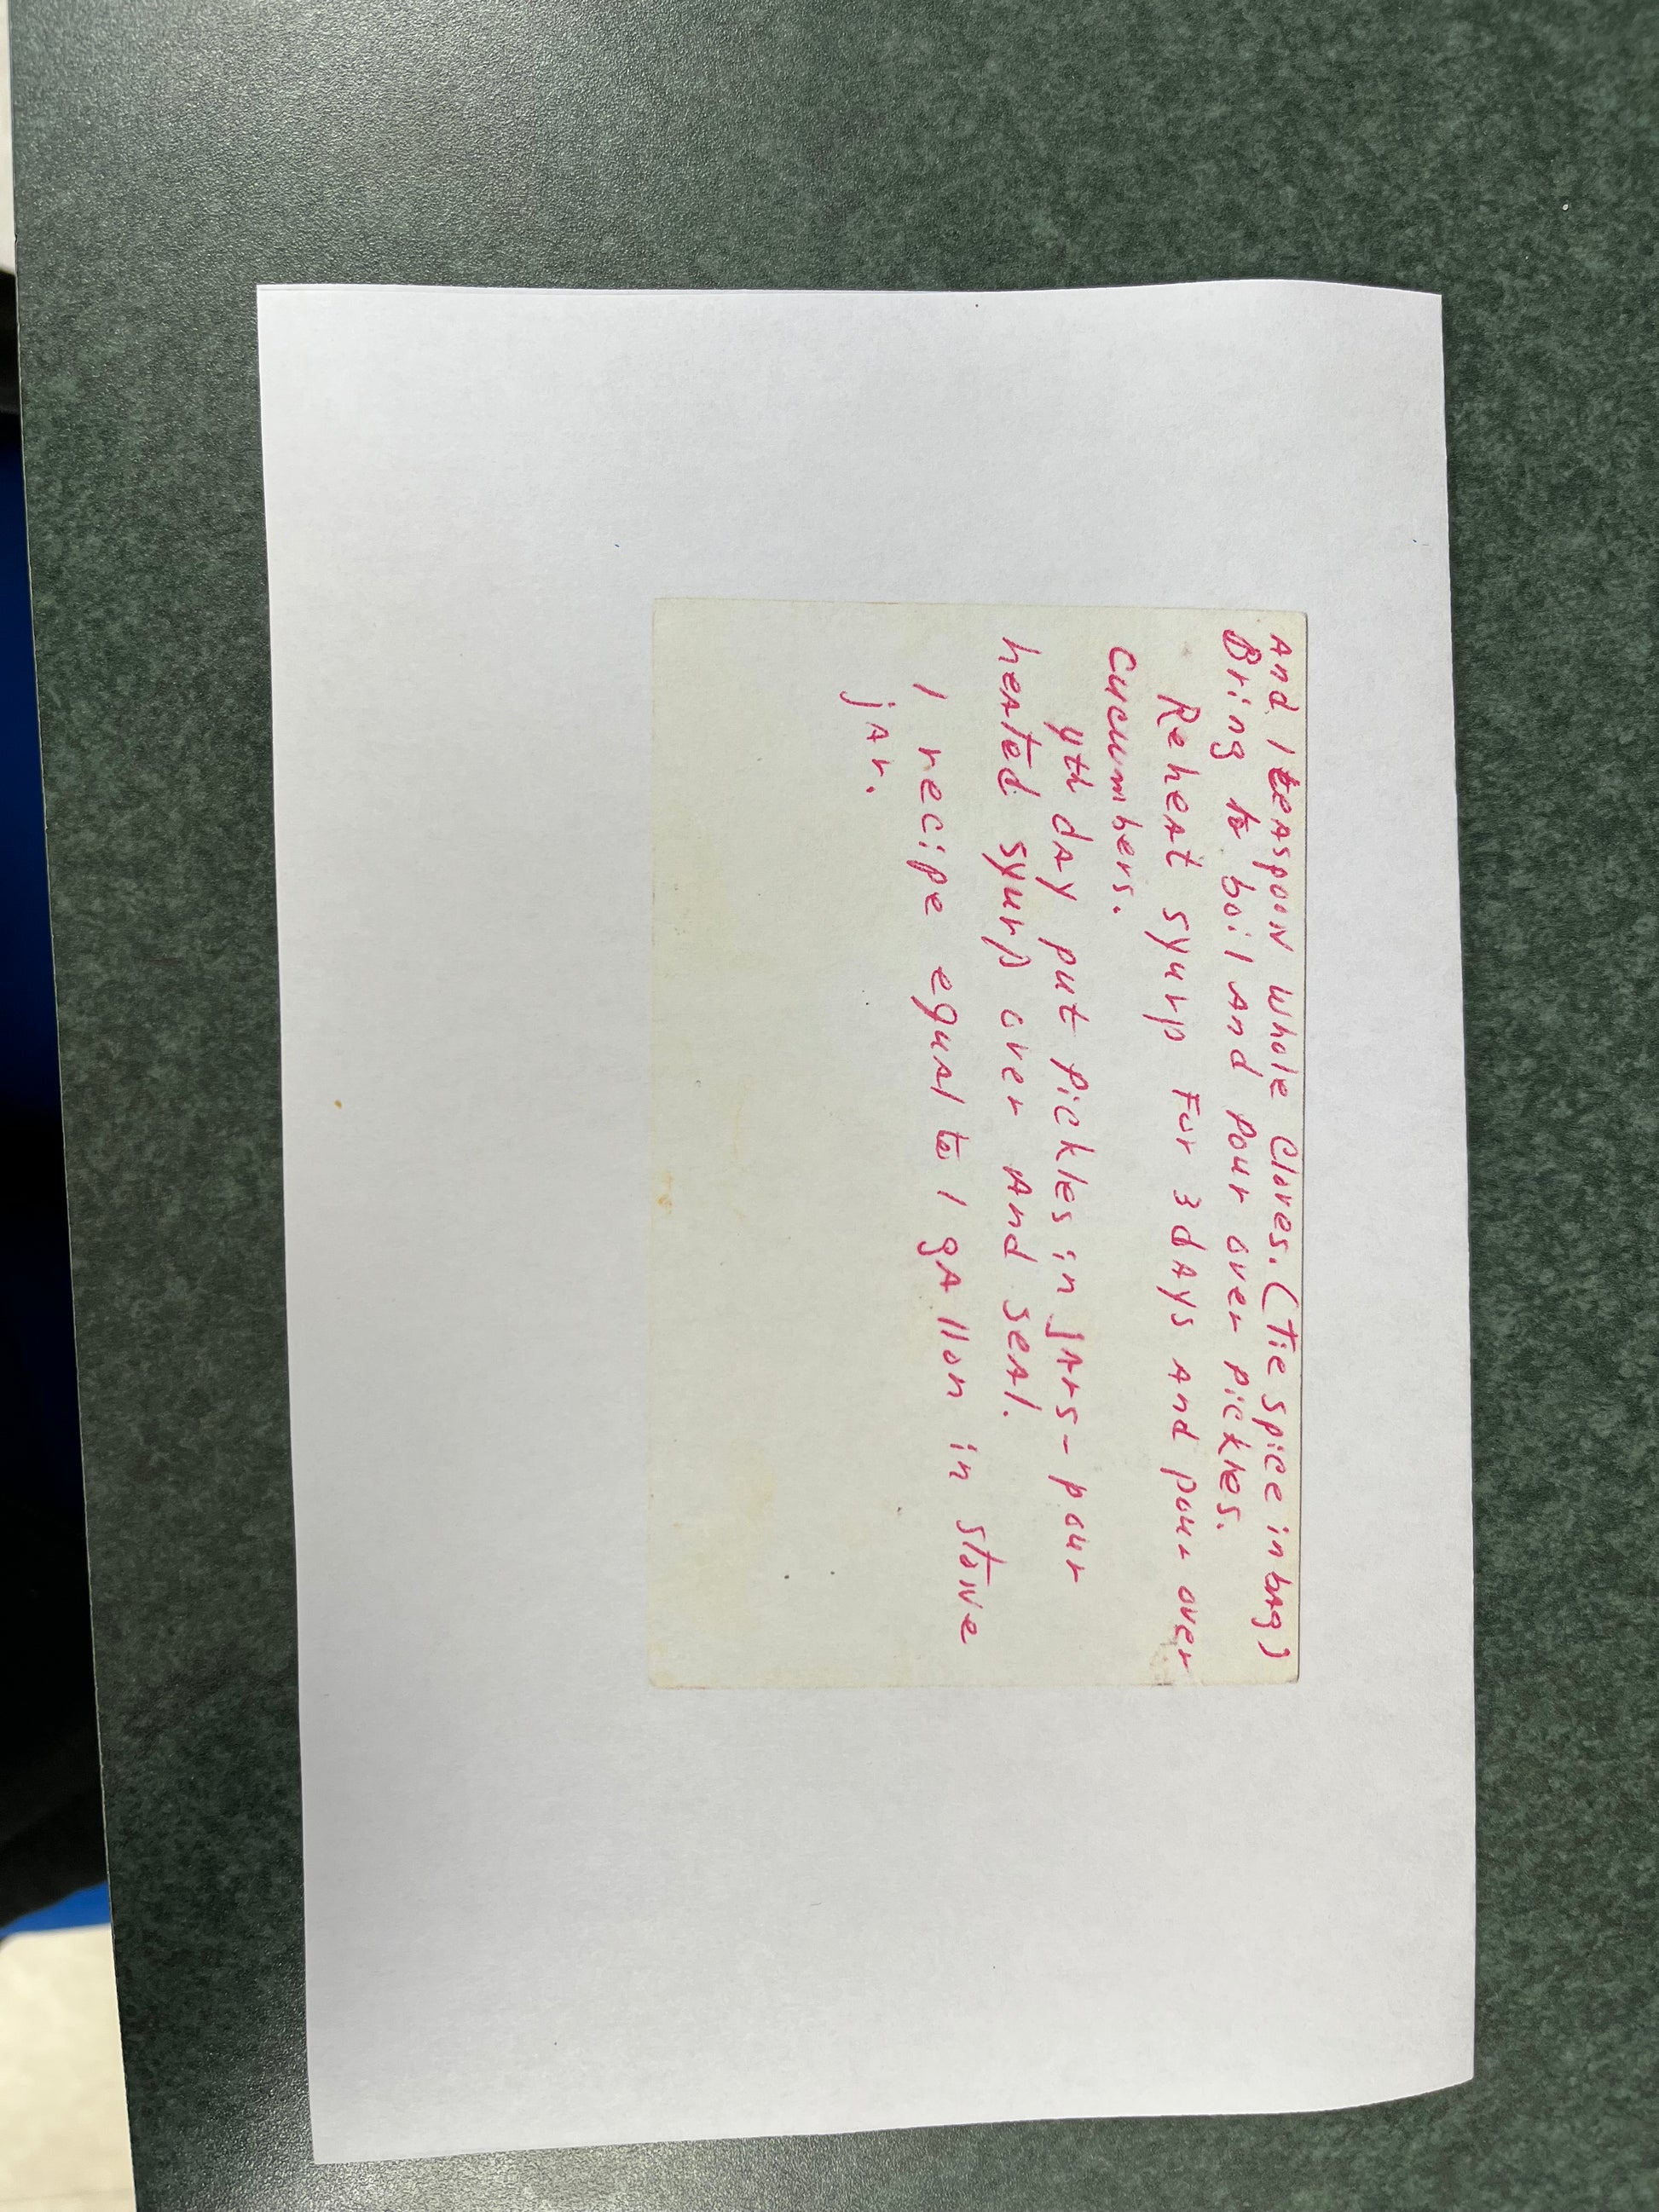 And 1 teaspoon whole Cloves. (Tie spice in bag)
Bring to boil And pour over pickles.
Reheat syurp For 3 days And pour over
cucumbers.
4th day put pickles in jars - pour
heated syurp over And seal.
1 recipe equal to 1 gallon in stone
jar.